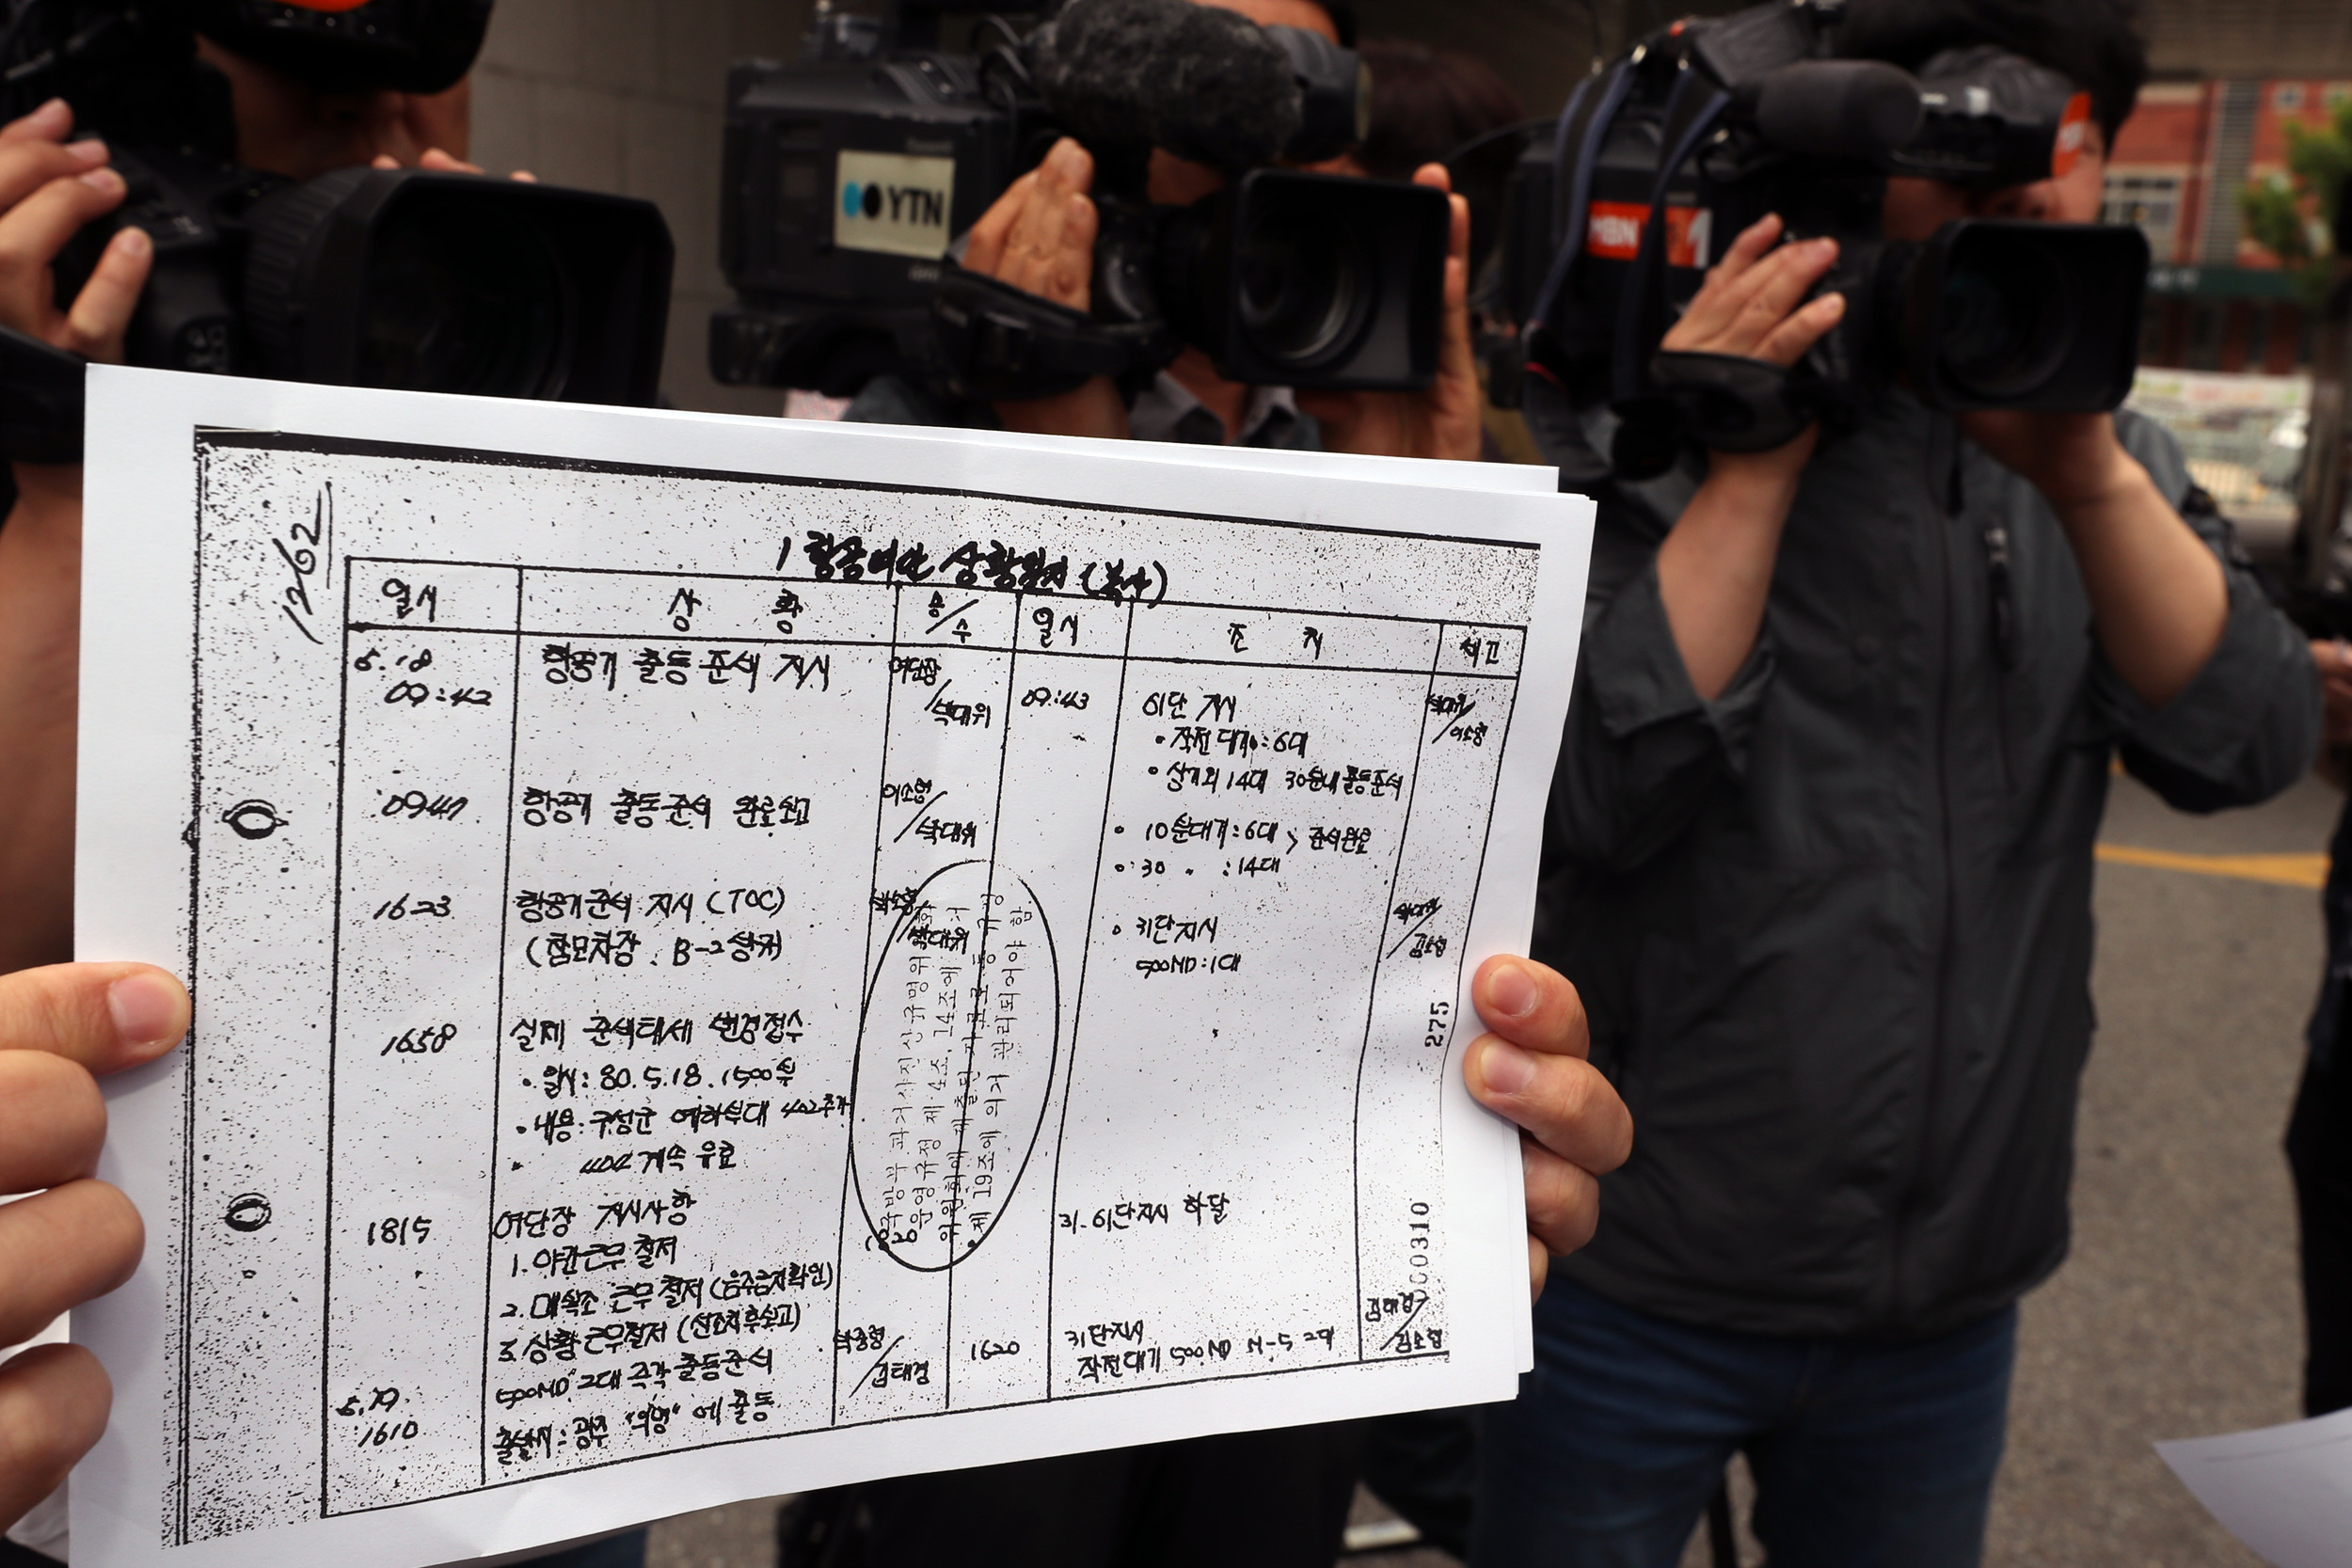 YTN
MBN
1262
1항공여단 상황일지 (복사)
일시 상황 송/수 일시 조치 비고
5.18 09:42 항공기 출동 준비 지시 여단장/박대위 09:43 61단 지시
· 작전대기 : 6대
· 상기외 14대 30분내 출동준비
0947 항공기 출동준비 완료보고 이소령/박대위
· 10분대기 : 6대 > 준비완료
· 30 〃 : 14대
1623 항공기준비 지시 (TOC)
(참모차장. B-2상치)
· 31단지시
500MD : 1대
1658 실제 준비태세 변경접수
· 일시 : 80.5.18.1500부
· 내용 : 예하부대 402추가
404 계속 유효
1815 여단장 지시사항 31.61단지시 하달
1. 야간근무 철저
2. 매복조 근무철저 (음주금지확인)
3. 상황근무철저 (선조치후보고)
5.19 1610 500MD 2대 즉각 출동준비 김태경 1620 31단지시
작전대기 500MD M-5 2대
출발지 : 광주 에 출동
국방부 과거사진상규명위원회
운영규정 제 4조, 14조에
위원회에 제출된 자료로
제 19조에 의거 관리되어야 함
275
000310